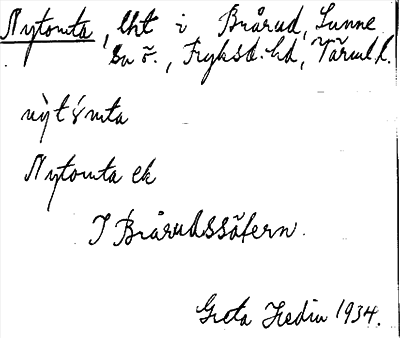 Nytomta, lht i Brårud, Sunne
sn ö., Fryksd. hd, Värml. l.
nỳtómta
Nytomta ek
I Brårudssätern.
Greta Hedin 1934.